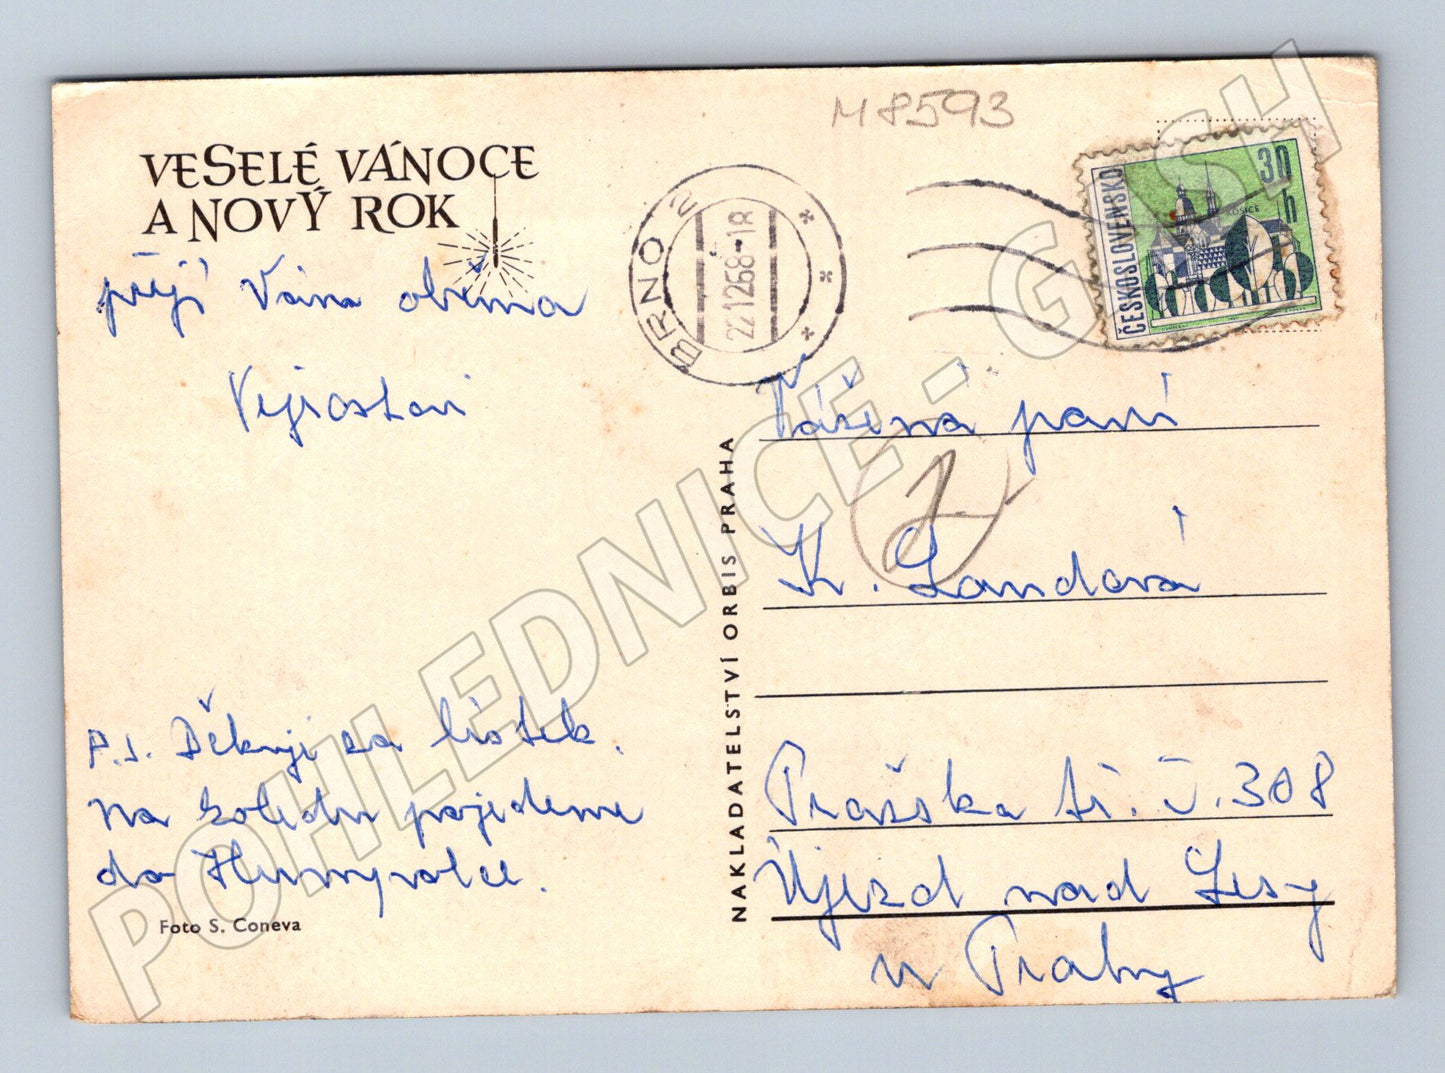 M 8593
VESELÉ VÁNOCE
A NOVÝ ROK
přejí Vám oběma
Vejrostovi
P.S. Děkuji za lístek.
Na koledu pojedeme
do Humpolce.
Foto S. Coneva
NAKLADATELSTVÍ ORBIS PRAHA
BRNO 2
22.12.68-18
ČESKOSLOVENSKO
30
h
KOŠICE
Vážená paní
K. Landová
Pražská tř. č. 308
Újezd nad Lesy
u Prahy
POHLEDNICE - G SH